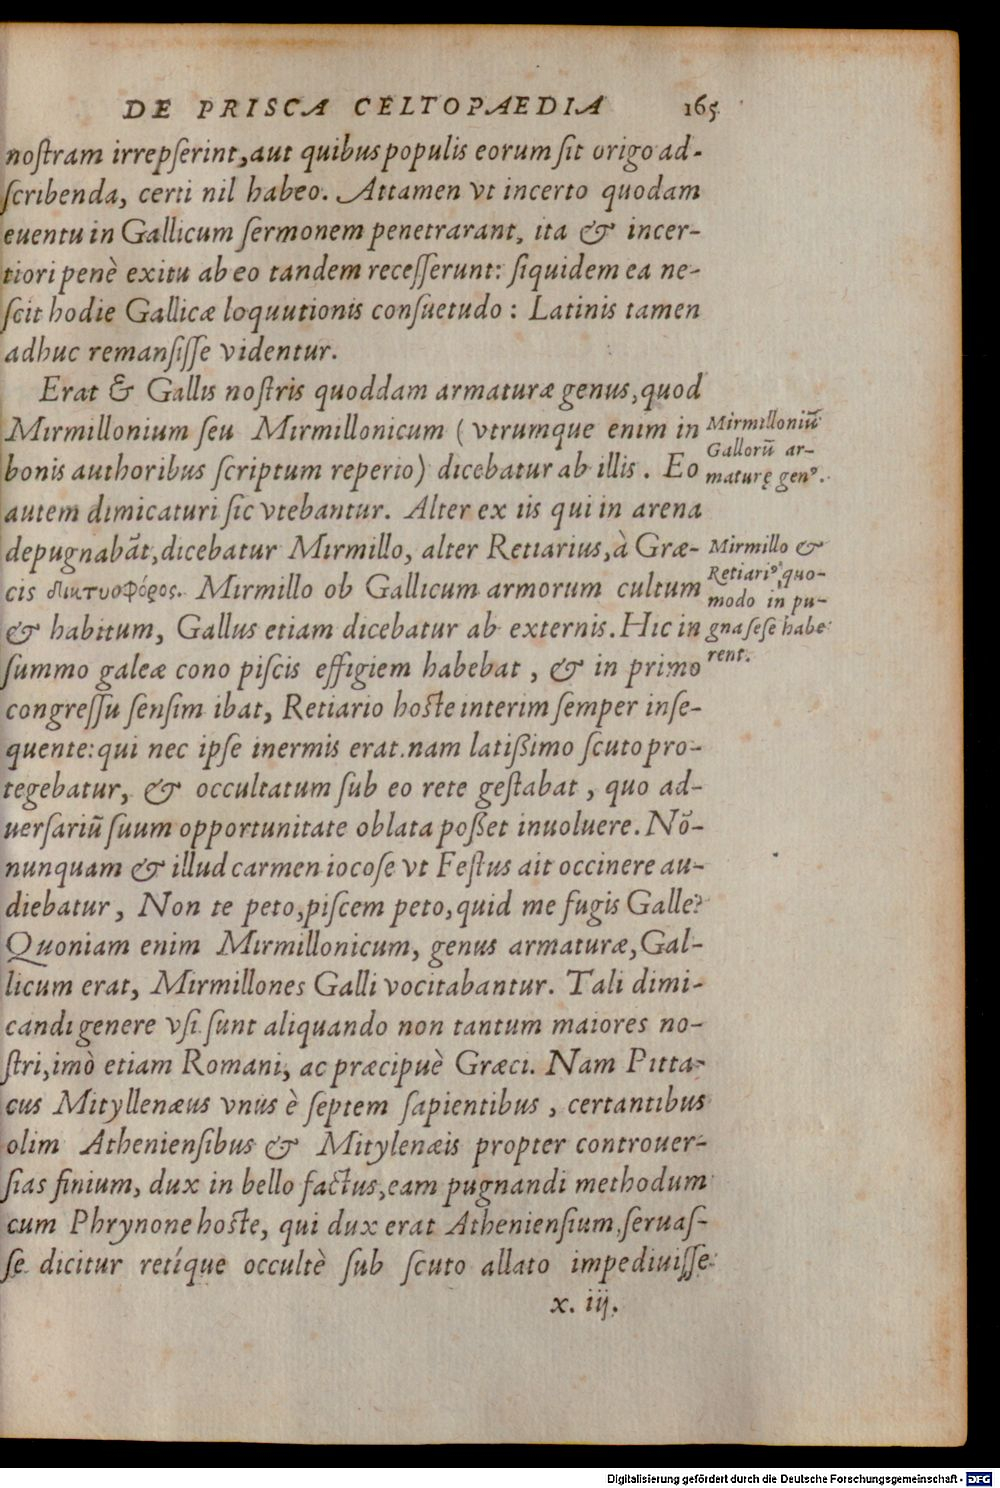 DE PRISCA CELTOPAEDIA 165
noſtram irrepſerint, aut quibus populis eorum ſit origo ad-
ſcribenda, certi nil habeo. Attamen vt incerto quodam
euentu in Gallicum ſermonem penetrarant, ita & incer-
tiori penè exitu ab eo tandem receſſerunt: ſiquidem ea ne-
ſcit hodie Gallicæ loquutionis conſuetudo: Latinis tamen
adhuc remanſiſſe videntur.
Erat & Gallis noſtris quoddam armaturæ genus, quod
Mirmillonium ſeu Mirmillonicum (vtrumque enim in
bonis authoribus ſcriptum reperio) dicebatur ab illis. Eo
autem dimicaturi ſic vtebantur. Alter ex iis qui in arena
depugnabāt, dicebatur Mirmillo, alter Retiarius, à Græ-
cis δικτυοφόρος. Mirmillo ob Gallicum armorum cultum
& habitum, Gallus etiam dicebatur ab externis. Hic in
ſummo galeæ cono piſcis effigiem habebat, & in primo
congreſſu ſenſim ibat, Retiario hoſte interim ſemper inſe-
quente: qui nec ipſe inermis erat. nam latißimo ſcuto pro-
tegebatur, & occultatum ſub eo rete geſtabat, quo ad-
uerſariū ſuum opportunitate oblata poßet inuoluere. Nō-
nunquam & illud carmen iocoſe vt Feſtus ait occinere au-
diebatur, Non te peto, piſcem peto, quid me fugis Galle?
Quoniam enim Mirmillonicum, genus armaturæ, Gal-
licum erat, Mirmillones Galli vocitabantur. Tali dimi-
candi genere vſi ſunt aliquando non tantum maiores no-
ſtri, imò etiam Romani, ac præcipuè Græci. Nam Pitta-
cus Mityllenæus vnus è ſeptem ſapientibus, certantibus
olim Athenienſibus & Mitylenæis propter controuer-
ſias finium, dux in bello factus, eam pugnandi methodum
cum Phrynone hoſte, qui dux erat Athenienſium, ſeruaſ-
ſe dicitur retíque occultè ſub ſcuto allato impediuiſſe
x. iij.
Mirmilloniū
Gallorū ar-
maturę genꝰ.
Mirmillo &
Retiariꝰ, quo-
modo in pu-
gna ſeſe habe
rent.
Digitalisierung gefördert durch die Deutsche Forschungsgemeinschaft - DFG